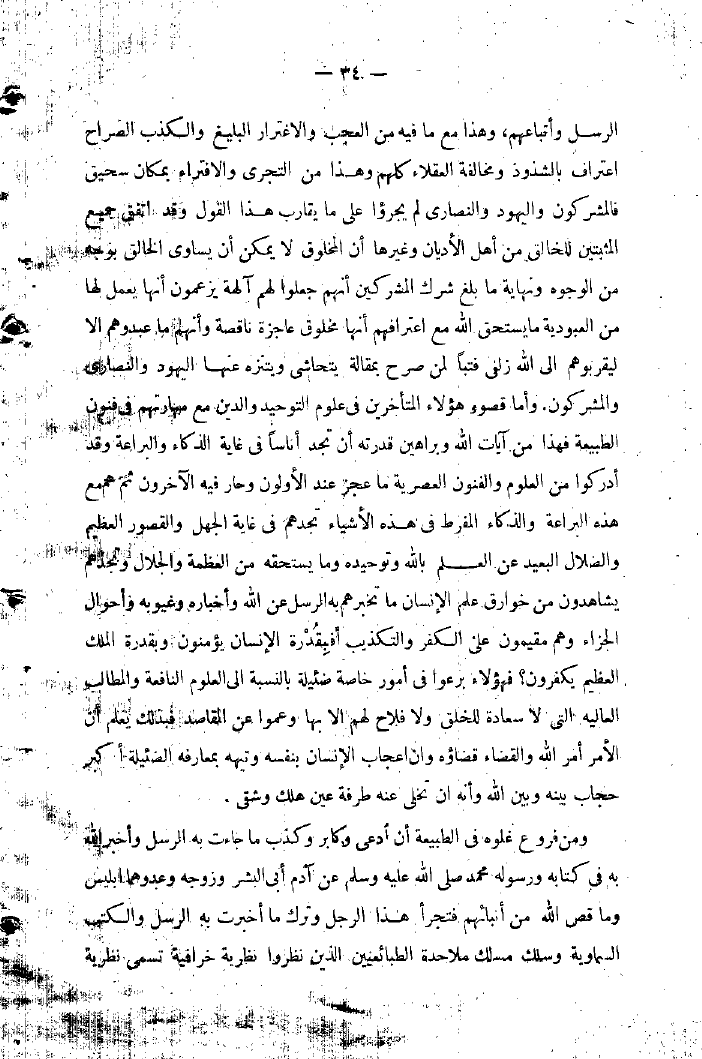 — ٣٤ —
الرسل وأتباعهم، وهذا مع ما فيه من العجب والاغترار البليغ والكذب الصراح
اعتراف بالشذوذ ومخالفة العقلاء كلهم وهذا من التجرى والافتراء بمكان سحيق
فالمشركون واليهود والنصارى لم يجرؤا على ما يقارب هذا القول وقد اتفق جميع
المثبتين للخالق من أهل الأديان وغيرها أن المخلوق لا يمكن أن يساوى الخالق بوجه
من الوجوه ونهاية ما بلغ شرك المشركين أنهم جعلوا لهم آلهة يزعمون أنها يعمل لها
من العبودية مايستحق الله مع اعترافهم أنها مخلوق عاجزة ناقصة وأنهم ما عبدوهم الا
ليقربوهم الى الله زلفى فتباً لمن صرح بمقالة يتحاشى ويتنزه عنها اليهود والنصارى
والمشركون. وأما قصور هؤلاء المتأخرين فى علوم التوحيد والدين مع مهارتهم فى فنون
الطبيعة فهذا من آيات الله وبراهين قدرته أن تجد أناساً فى غاية الذكاء والبراعة وقد
أدركوا من العلوم والفنون العصرية ما عجز عند الأولون وحار فيه الآخرون ثم هم مع
هذه البراعة والذكاء المفرط فى هذه الأشياء تجدهم فى غاية الجهل والقصور العظيم
والضلال البعيد عن العلم بالله وتوحيده وما يستحقه من العظمة والجلال وتجدهم
يشاهدون من خوارق علم الإنسان ما تخبرهم به الرسل عن الله وأخباره وغيوبه وأحوال
الجزاء وهم مقيمون على الكفر والتكذيب أفبقُدْرة الإنسان يؤمنون وبقدرة الملك
العظيم يكفرون؟ فهؤلاء برعوا فى أمور خاصة ضئيلة بالنسبة الى العلوم النافعة والمطالب
العاليه التى لا سعادة للخلق ولا فلاح لهم الا بها وعموا عن المقاصد فبذلك يعلم أن
الأمر أمر الله والقضاء قضاؤه وان اعجاب الإنسان بنفسه وتيهه بمعارفه الضئيلة أكبر
حجاب بينه وبين الله وأنه ان تخلى عنه طرفة عين هلك وشقى .
ومن فروع غلوه فى الطبيعة أن أدعى وكابر وكذب ما جاءت به الرسل وأخبر الله
به فى كتابه ورسوله محمد صلى الله عليه وسلم عن آدم أبى البشر وزوجه وعدوهما ابليس
وما قص الله من أنبائهم فتجرأ هذا الرجل وترك ما أخبرت به الرسل والكتب
السماوية وسلك مسلك ملاحدة الطبائعيين الذين نظروا نظرية خرافية تسمى نظرية